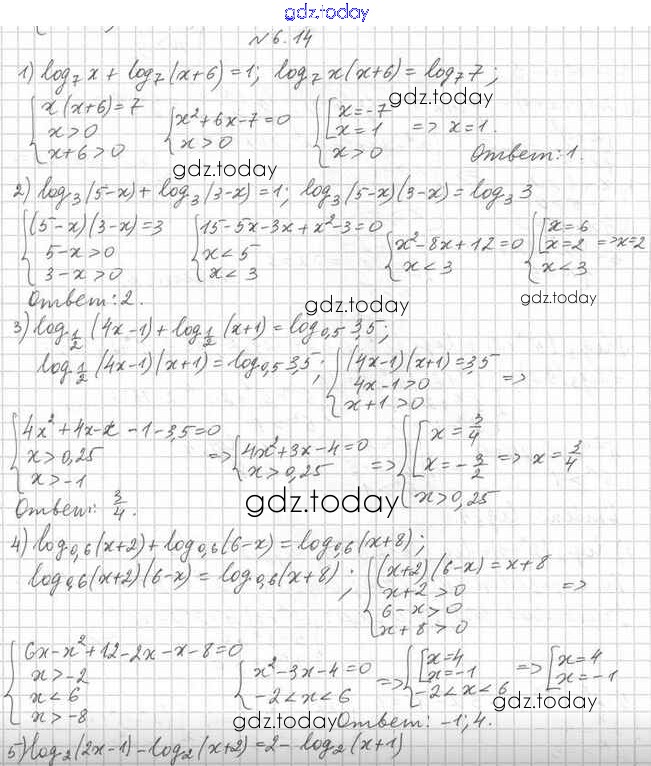 gdz.today
№6.14
1) log₇x + log₇(x+6) = 1; log₇x(x+6) = log₇7;
{ x(x+6)=7 { x²+6x-7=0 { [ x=-7
x>0 x>0 x=1 => x=1.
x+6>0 x>0 Ответ: 1.
gdz.today
gdz.today
2) log₃(5-x) + log₃(3-x) = 1; log₃(5-x)(3-x) = log₃3
{ (5-x)(3-x)=3 { 15-5x-3x+x²-3=0 { x²-8x+12=0 { [ x=6
5-x>0 x<5 x<3 x=2 => x=2
3-x>0 x<3 x<3
Ответ: 2.
gdz.today
gdz.today
3) log_{1/2}(4x-1) + log_{1/2}(x+1) = log_{0,5}3,5;
log_{1/2}(4x-1)(x+1) = log_{0,5}3,5; { (4x-1)(x+1)=3,5
4x-1>0 =>
x+1>0
{ 4x²+4x-x-1-3,5=0 => { 4x²+3x-4=0 => { [ x=3/4
x>0,25 x>0,25 x=-3/2 => x=3/4
x>-1 x>0,25
Ответ: 3/4.
gdz.today
4) log_{0,6}(x+2) + log_{0,6}(6-x) = log_{0,6}(x+8);
log_{0,6}(x+2)(6-x) = log_{0,6}(x+8); { (x+2)(6-x)=x+8
x+2>0 =>
6-x>0
x+8>0
{ 6x-x²+12-2x-x-8=0 { x²-3x-4=0 => { [ x=4 => [ x=4
x>-2 -2<x<6 x=-1 x=-1
x<6 -2<x<6
x>-8
gdz.today Ответ: -1; 4.
5) log₂(2x-1) - log₂(x+2) = 2 - log₂(x+1)